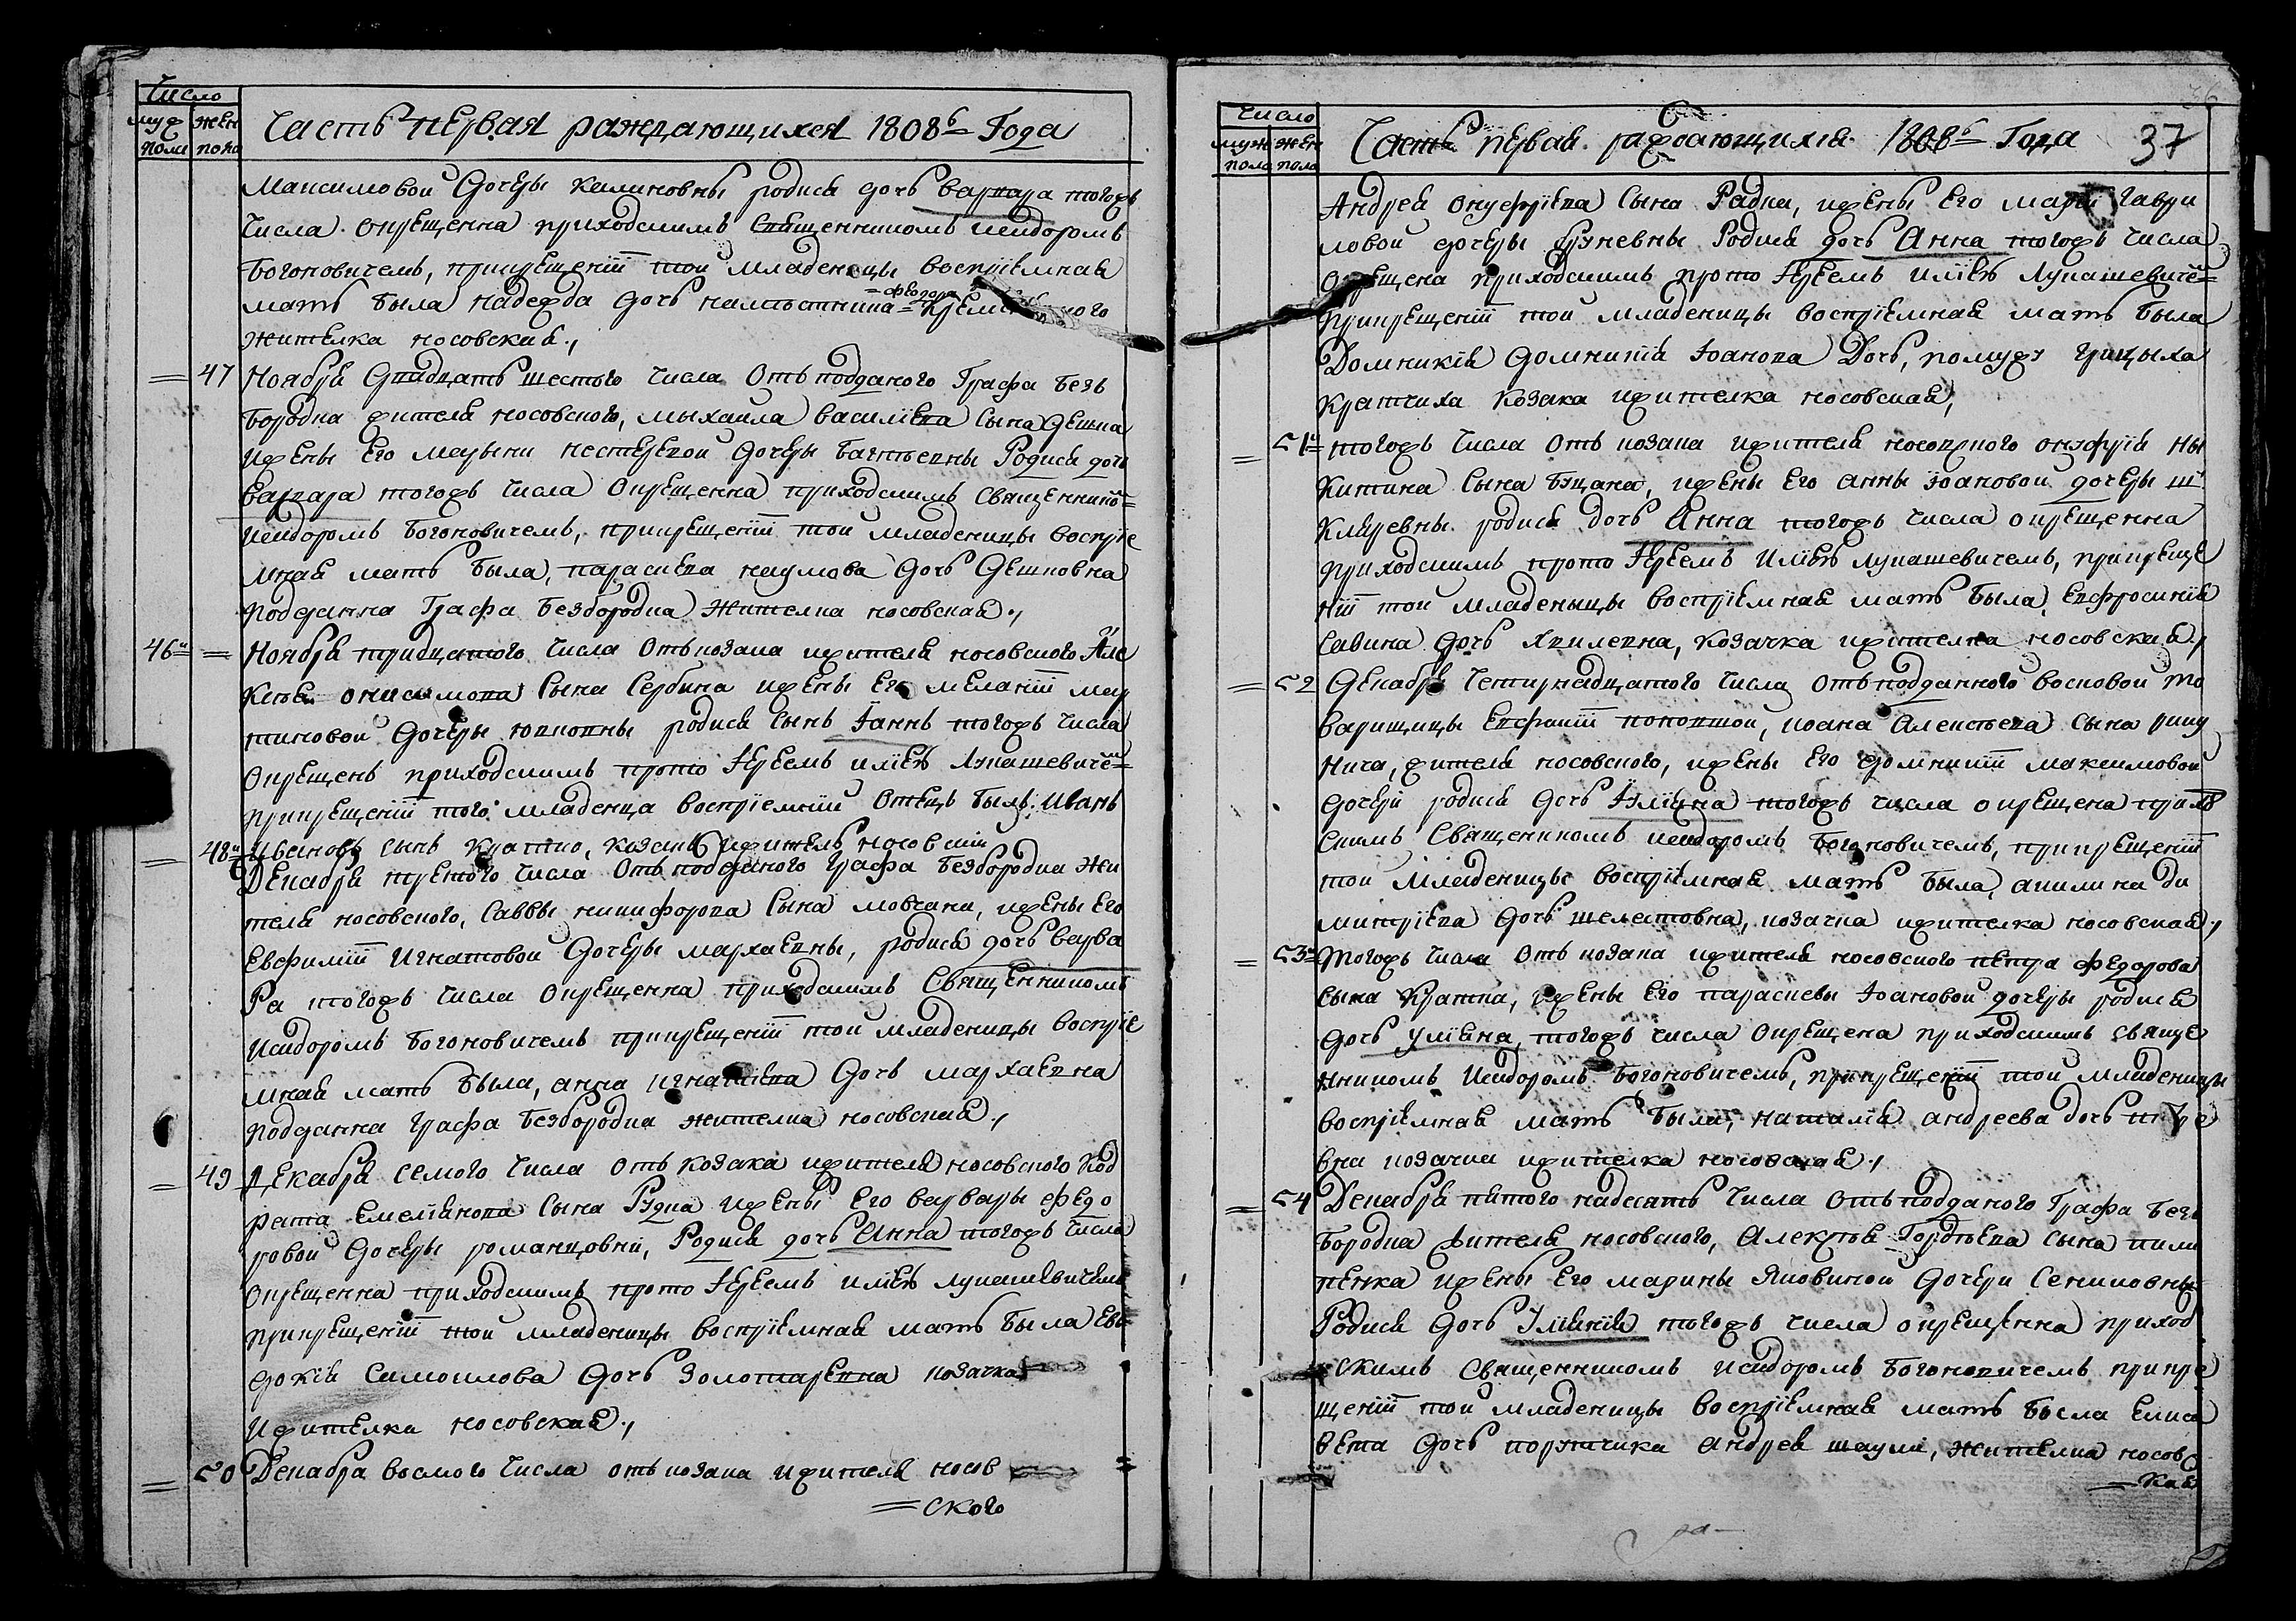 Число
муж жен
пола пола
Часть первая раждающихся 1808г Года
Максимовой дочеры Калиновны родися дочь варвара тогожъ
числа окрещенна приходскимъ священникомъ исидоромъ
Богоновичемъ, прикрещенїи тои младеницы воспрїемная
= феодора
мать была надежда дочь наместника =
жителка носовская.,
47 Ноября двадцать шестого числа отъ подданого Графа Безъ
бородка жителя носовского, мыхаила василїева сына
ижены Его марыни нестеревой дочеры Родися дочь
варвара тогожъ числа окрещенна приходскимъ священнико=
исидоромъ Богоновичемъ, прикрещенїи тои младеницы воспрїе
мная мать была, параскева наумова дочь
подданна Графа Безбородка жителка носовская.,
46 Ноября тридцатого числа отъ козака ижителя носовского Але
ксѣя онисимова сына Сербина ижены Его меланїи мар
тиновой дочеры родися сынъ Їаннъ тогожъ числа
окрещенъ приходскимъ прото Їереемъ илїею Лукашевиче=
прикрещенїи того младенца воспрїемнїй отецъ былъ Иванъ
Ивановъ сынъ Кратко, козакъ ижитель носовскїй
48 Декабря третого числа отъ подданого графа Безбородка жи
теля носовского, Саввы никифорова сына мовчана, ижены Его
Евфимїи Игнатовой дочеры мархаевны, родися дочь варва
ра тогожъ числа окрещенна приходскимъ священникомъ
исидоромъ Богоновичемъ прикрещенїи тои младеницы воспрїе
мная мать была, анна игнатїева дочь мархаевна
подданна графа Безбородка жителка носовская.,
49 Декабря семого числа отъ козака ижителя носовского Код
рата Емелїянова сына Рудка ижены Его варвары федо
ровой дочеры романцовни, Родися дочь Анна тогожъ числа
окрещенна приходскимъ прото Їереемъ илїею лукашевичемъ
прикрещенїи тои младеницы воспрїемная мать была Евъ
докїя Самоилова дочь Золотаревна козачка
ижителка носовская.,
50 Декабра восмого числа отъ козака ижителя носов
= ского
Число
муж жен
пола пола
Часть первая раждающихся 1808г Года 37
Андрея онуфрїева сына Радка, ижены Его марїи гаври
ловой дочеры Родися дочь Анна тогожъ числа
окрещена приходскимъ прото Їереемъ илїею Лукашевиче=
прикрещенїи тои младеницы воспрїемная мать была
Домникїя домникїя Їоанова дочь, помужу грицыха
Кратчиха козака ижителка носовская,
51 тогожъ числа отъ козака ижителя носовского онуфрїя ны
китина сына Буцана, ижены Его анны Їоановой дочеры ш
кляревны родися дочь Анна тогожъ числа окрещенна
приходскимъ прото Їереемъ илїею лукашевичемъ, прикреще
нїи тои младеныцы воспрїемная мать была, Евфросинїя
Савина дочь козачка ижителка носовская.,
52 Декабря четирнадцатого числа отъ подданного восковой то
варищицы, иоана Алексѣева сына
нича, жителя носовского, ижены Его домникїи максимовой
дочери родися дочь Їулїяна тогожъ числа окрещена прихо
скимъ священикомъ исидоромъ Богоновичемъ, прикрещенїи
тои младеницы воспрїемная мать была, акилина ди
митрїева дочь шелестовна, козачка ижителка носовская.,
53 Тогожъ числа отъ козака ижителя носовского петра федорова
сына кратка, ижены Его параскевы Їоановой дочеры родися
дочь Улїяна, тогожъ числа окрещена приходскимъ свяще
нникомъ Исидоромъ Богоновичемъ, прикрещенїи тои младеницы
воспрїемная мать была, наталїя андреева дочь
вна козачка ижителка носовская.,
54 Декабря пятого надесять числа отъ подданого графа Безъ
бородка жителя носовского, Алексѣя Гордѣева сына пили
пенка ижены Его марины Яковиной дочери Сениковны
Родися дочь Улїянїя тогожъ числа окрещенна приход
скимъ священникомъ исидоромъ Богоновичемъ прикре
щенїи тои младеницы воспрїемная мать была Елиса
вета дочь поручика андрея, жителка носовс
= кая